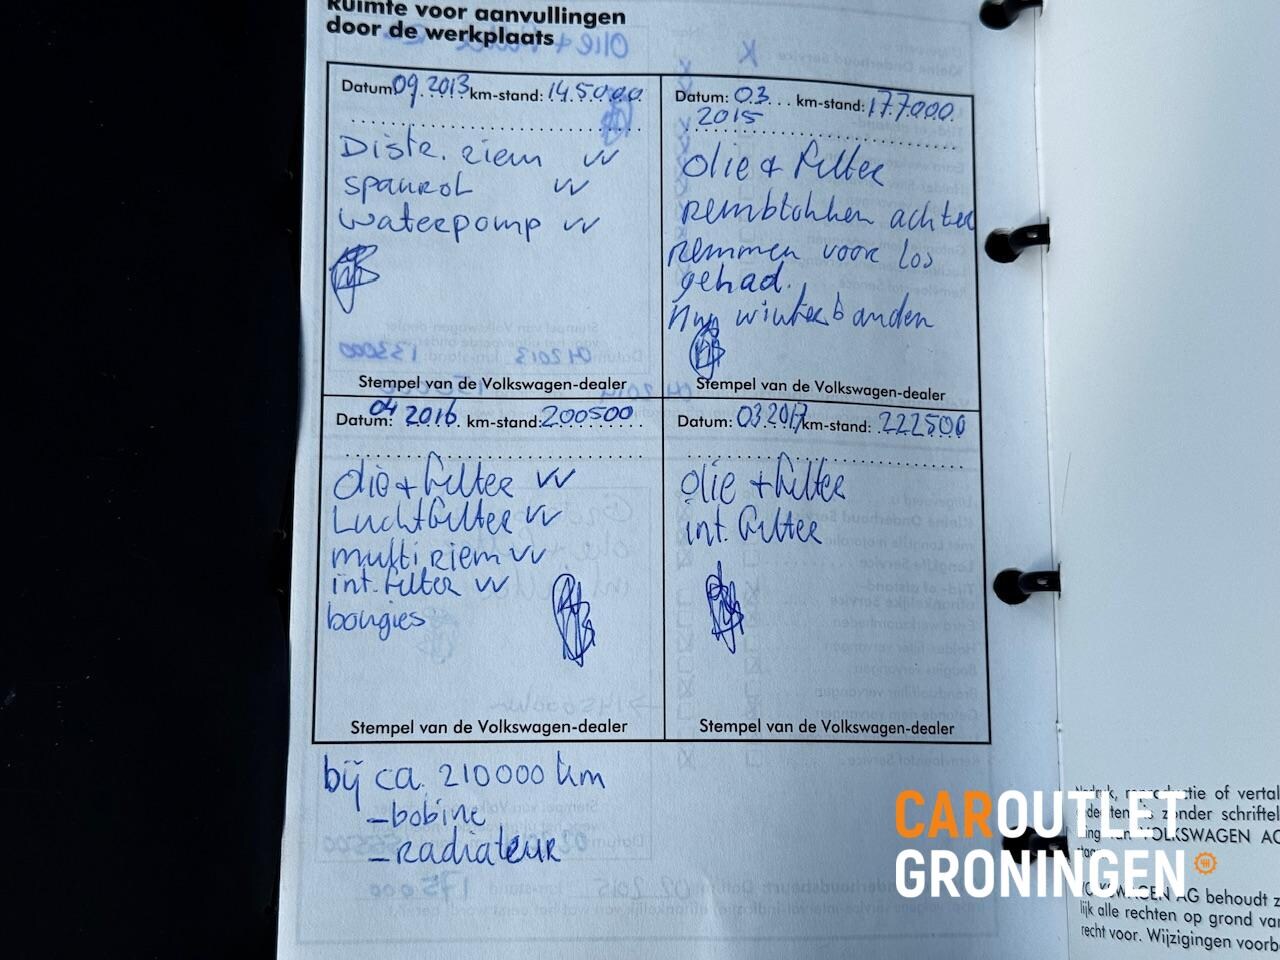 Ruimte voor aanvullingen
door de werkplaats
Datum: 09.2013 km-stand: 145.000
Distr. riem VV
spanrol VV
waterpomp VV
Stempel van de Volkswagen-dealer
Datum: 03 km-stand: 177.000
2015
olie + filter
remblokken achter
remmen voor los
gehad.
winterbanden
Stempel van de Volkswagen-dealer
Datum: 04 2016 km-stand: 200500
olie + filter VV
Luchtfilter VV
multi riem VV
int. filter VV
bougies
Stempel van de Volkswagen-dealer
Datum: 03.2017 km-stand: 222500
olie + filter
int. filter
Stempel van de Volkswagen-dealer
bij ca. 210000 km
- bobine
- radiateur
CAROUTLET
GRONINGEN
VOLKSWAGEN AG
VOLKSWAGEN AG behoudt
lijk alle rechten op grond
recht voor. Wijzigingen